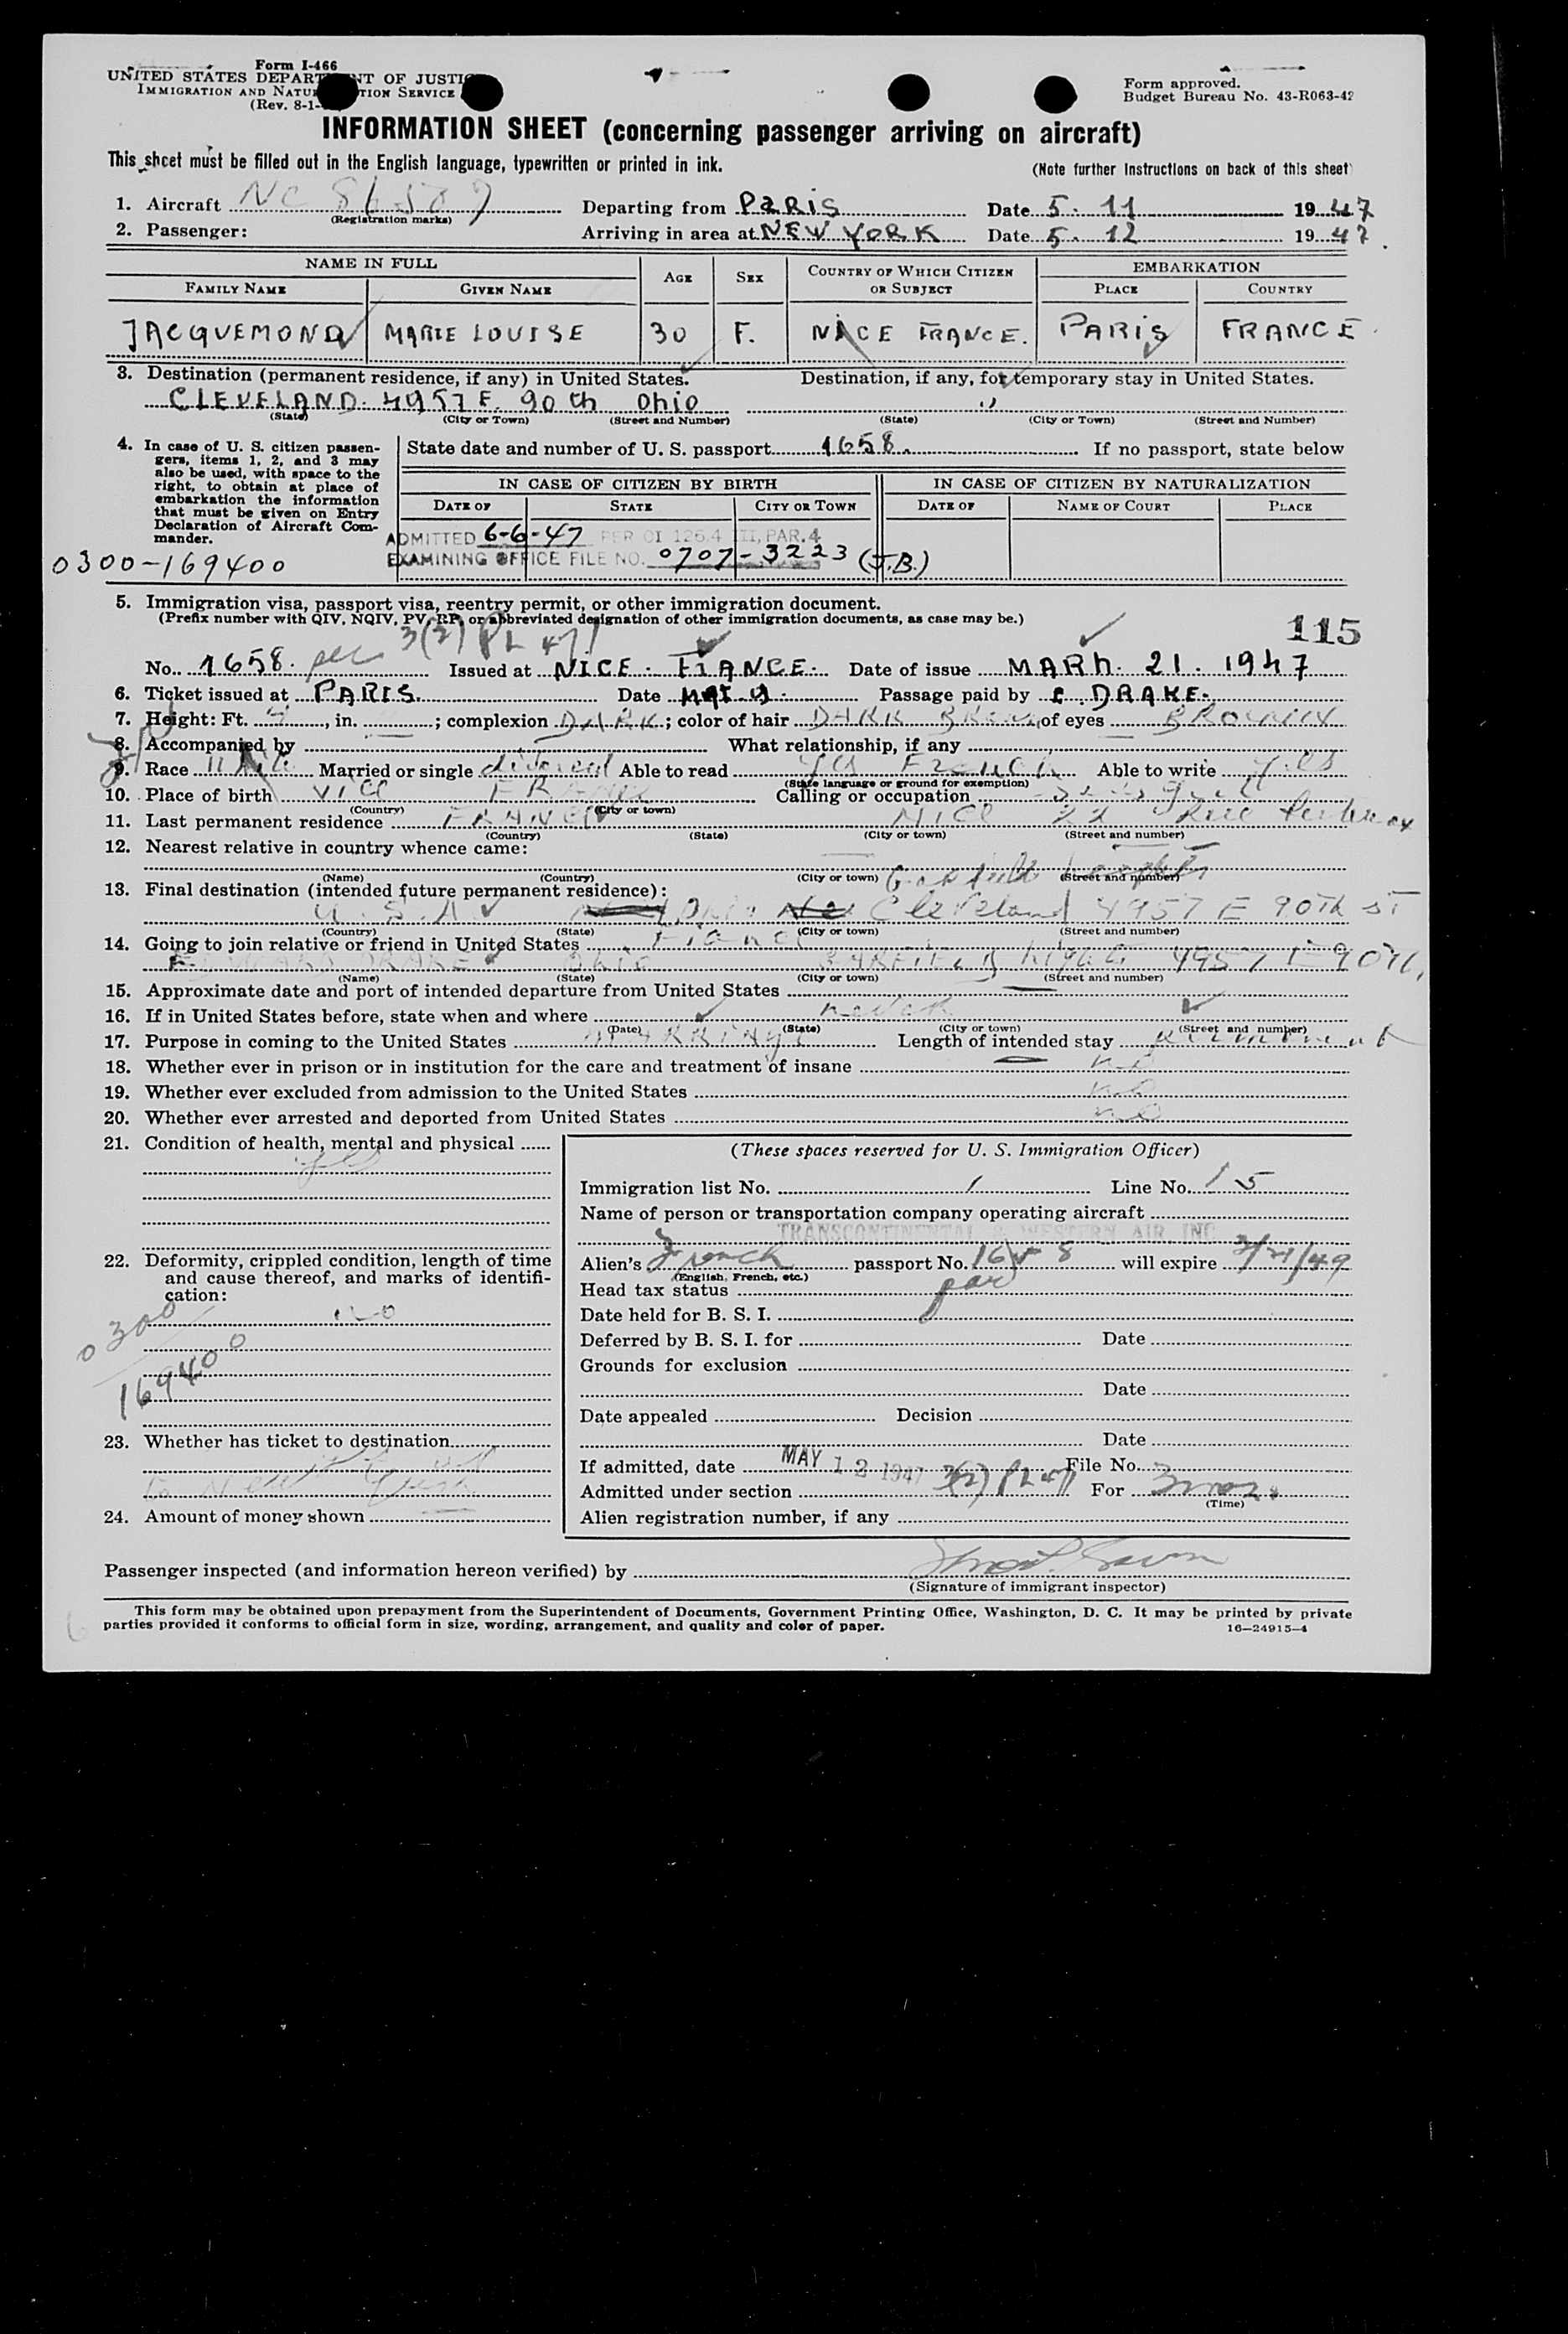 Form I-466
UNITED STATES DEPARTMENT OF JUSTICE
IMMIGRATION AND NATURALIZATION SERVICE
(Rev. 8-1-
Form approved.
Budget Bureau No. 43-R063-42
INFORMATION SHEET (concerning passenger arriving on aircraft)
This sheet must be filled out in the English language, typewritten or printed in ink.
(Note further instructions on back of this sheet)
1. Aircraft NC 86509 Departing from PARIS Date 5. 11 1947
(Registration marks)
2. Passenger: Arriving in area at NEW YORK Date 5. 12 1947.
NAME IN FULL AGE SEX COUNTRY OF WHICH CITIZEN OR SUBJECT EMBARKATION
FAMILY NAME GIVEN NAME PLACE COUNTRY
JACQUEMOND MARIE LOUISE 30 F. NICE FRANCE. PARIS FRANCE
3. Destination (permanent residence, if any) in United States. Destination, if any, for temporary stay in United States.
CLEVELAND. 4957 E. 90th Ohio
(State) (City or Town) (Street and Number) (State) (City or Town) (Street and Number)
4. In case of U. S. citizen passengers, items 1, 2, and 3 may also be used, with space to the right, to obtain at place of embarkation the information that must be given on Entry Declaration of Aircraft Commander.
State date and number of U. S. passport 1658. If no passport, state below
IN CASE OF CITIZEN BY BIRTH IN CASE OF CITIZEN BY NATURALIZATION
DATE OF STATE CITY OR TOWN DATE OF NAME OF COURT PLACE
ADMITTED 6-6-47 PER OI 126.4 III, PAR. 4
EXAMINING OFFICE FILE NO. 0707-3223 (J.B.)
0300-169400
5. Immigration visa, passport visa, reentry permit, or other immigration document.
(Prefix number with QIV, NQIV, PV, RP, or abbreviated designation of other immigration documents, as case may be.)
3(2) PL 471
115
No. 1658. sec Issued at NICE. FRANCE. Date of issue MARh. 21. 1947
6. Ticket issued at PARIS Date MAI 9. Passage paid by E. DRAKE.
7. Height: Ft. , in. ; complexion DARK; color of hair DARK of eyes
8. Accompanied by What relationship, if any
9. Race White Married or single divorced Able to read yes French Able to write yes
(State language or ground for exemption)
10. Place of birth NICE FRANCE Calling or occupation
(Country) (City or town)
11. Last permanent residence FRANCE NICE 22 Rue
(Country) (State) (City or town) (Street and number)
12. Nearest relative in country whence came:
(Name) (Country) (City or town) (Street and number)
13. Final destination (intended future permanent residence):
U.S.A. Ohio Cleveland 4957 E 90th ST
(Country) (State) (City or town) (Street and number)
14. Going to join relative or friend in United States Fiancé
EDWARD DRAKE OHIO GARFIELD Heights 4957 E 90th.
(Name) (State) (City or town) (Street and number)
15. Approximate date and port of intended departure from United States
16. If in United States before, state when and where never
(Date) (State) (City or town) (Street and number)
17. Purpose in coming to the United States MARRIAGE Length of intended stay permanent
18. Whether ever in prison or in institution for the care and treatment of insane no
19. Whether ever excluded from admission to the United States no
20. Whether ever arrested and deported from United States no
21. Condition of health, mental and physical
yes
22. Deformity, crippled condition, length of time and cause thereof, and marks of identification:
no
0300
169400
23. Whether has ticket to destination
to New York
24. Amount of money shown
(These spaces reserved for U. S. Immigration Officer)
Immigration list No. 1 Line No. 15
Name of person or transportation company operating aircraft
TRANSCONTINENTAL & WESTERN AIR, INC
Alien's French passport No. 1658 will expire 3/21/49
(English, French, etc.)
Head tax status
Date held for B. S. I.
Deferred by B. S. I. for Date
Grounds for exclusion
Date
Date appealed Decision
Date
If admitted, date MAY 12 1947 File No.
Admitted under section 3(2) PL 471 For 3 mos.
(Time)
Alien registration number, if any
Passenger inspected (and information hereon verified) by
(Signature of immigrant inspector)
This form may be obtained upon prepayment from the Superintendent of Documents, Government Printing Office, Washington, D. C. It may be printed by private
parties provided it conforms to official form in size, wording, arrangement, and quality and color of paper.
16—24915-4